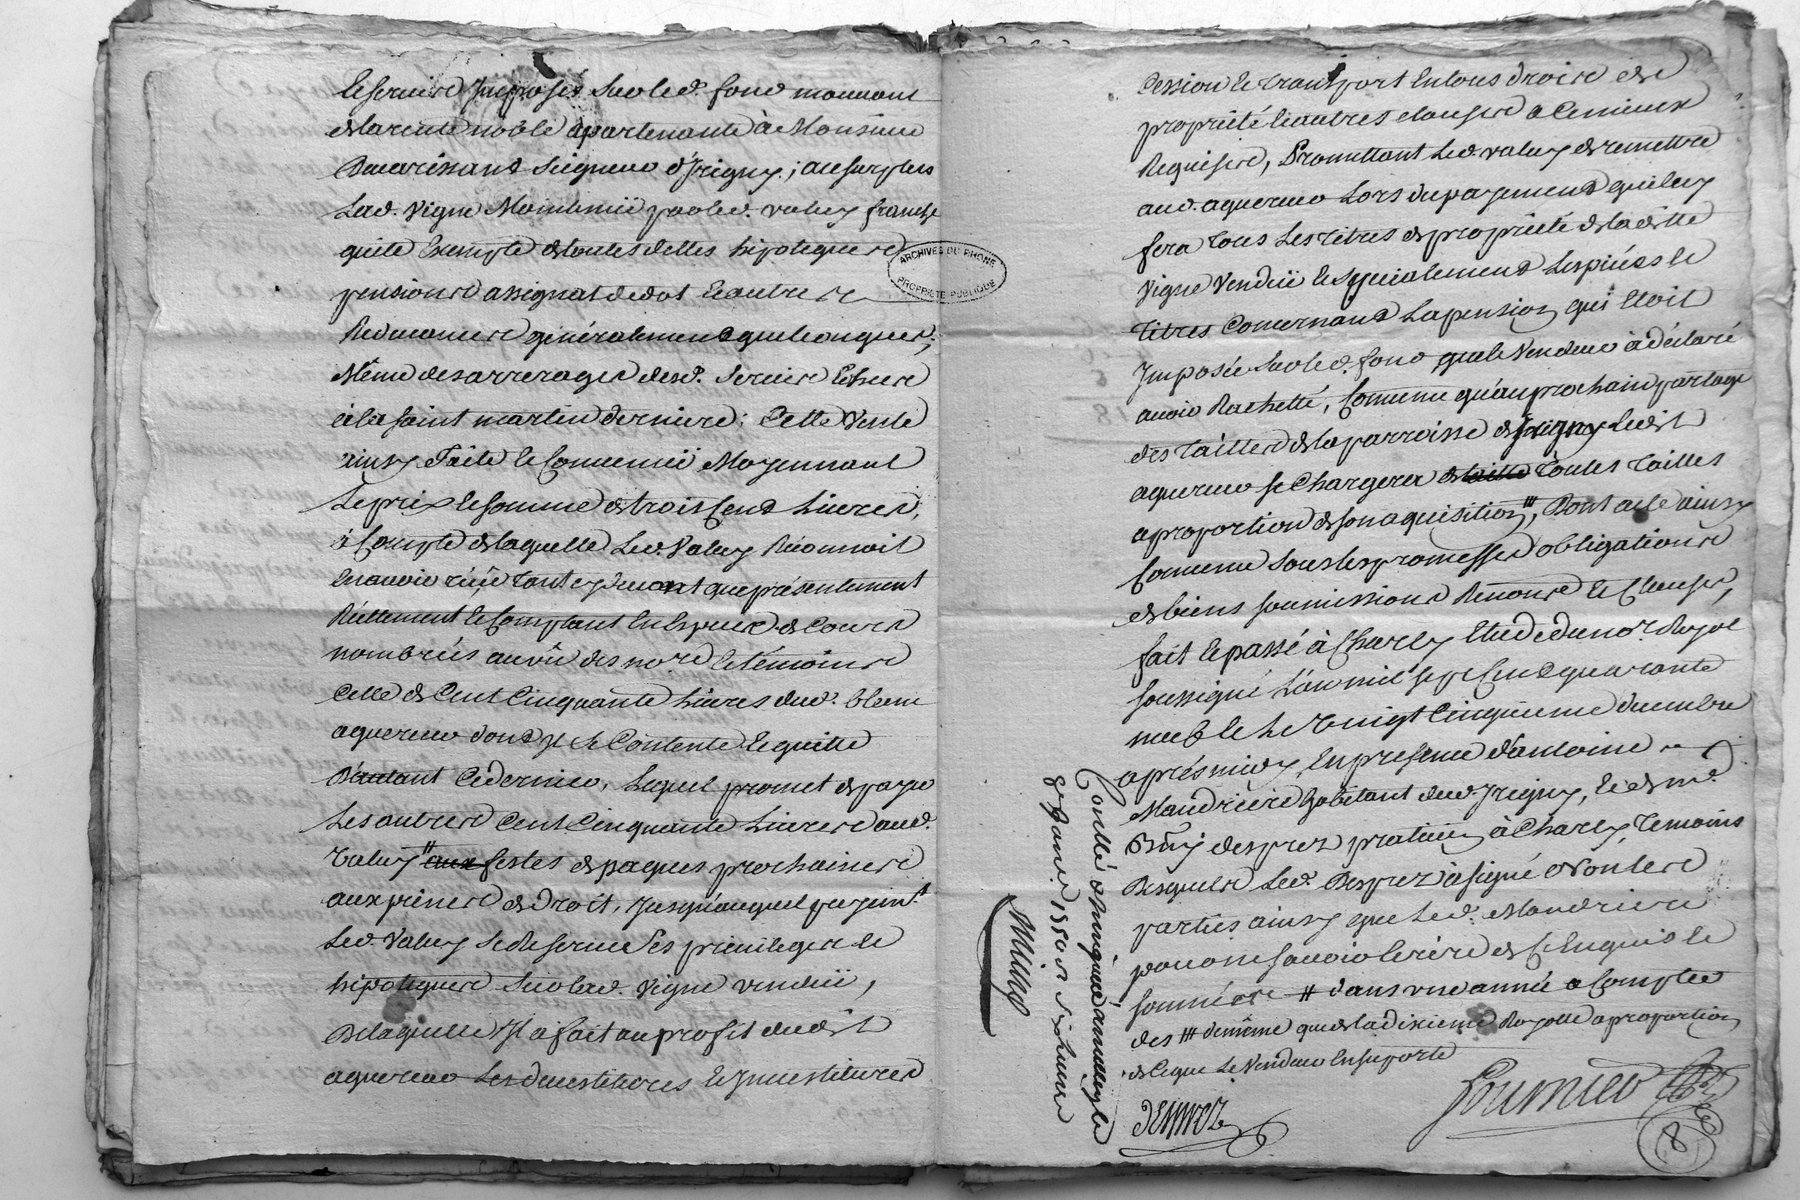 le servire Imposés sur led. fond mouvant
de la rente noble apartenante à Monsieur
seigneur d'Irigny ; au surplus
Lad. vigne Maintenüe par led. valuy franche
quitte Exempte de toutes dettes hipoteques
pensions assignat de dot et autres
Redevances généralement quelconques ;
Même des arrerages desd. servis Echus
à la saint martin derniere ; Cette Vente
ainsy faite et Convenüe Moyennant
Le prix et somme de trois Cend Livres,
à Compte de laquelle Led. Valuy Reconnoit
En avoir reçü tant cy devant que présentement
Réellement et Comptant En Espece de Cours
nombrées au vû des nores. et témoins
Celle de Cent Cinquante Livres dud.
aquereur dont jl se Contente et quitte
D'autant Ce dernier, Lequel promet de payer
Les autres Cent Cinquante Livres aud.
Valuy # aux festes de paques prochaines
aux peines de Droit, Jusqu'auquel payemt.
Led. Valuy se Reserve ses privileges et
hipoteques sur lad. vigne vendüe,
De laquelle Jl à fait au profit dudit
aquereur Les devestitures et Jnvestitures
ARCHIVES DU RHONE
PROPRIÉTÉ PUBLIQUE
Cession et transport En tous droits de
propriété et autres clauses a ce mieux
Requises, Promettant Led. valuy de remettre
aud. aquereur Lors du payement qu'il luy
fera tous Les titres de propriété de la ditte
vigne Vendüe et specialement Les piéces et
titres Concernans La pension qui Etoit
Jmposée sur led. fond que le Vendeur à déclaré
avoir Rachetté, Comme qu'au prochain partage
des tailles de la parroisse d'Jrigny Ledit
aquereur se Chargera de toutes tailles
a proportion de son aquisition ###, Dont acte ainsy
Convenu sous les promesses obligations
de biens soumissions Renonc. et Clauses,
fait et passé à Charly Etude du nore. Royal
soussigné L'an mil sept Cend quarante
neuf et Le Vingt Cinquieme decembre
aprés midy En presence d'antoine
Mandriere habitant dud. Jrigny, et de me.
desprez praticien à Charly, temoins
Desquels Led. Desprez à signé Non Les
parties ainsy que Led. Mandriere
pour ne savoir Ecrire de Ce Enquis et
sommés # dans une année a Compter
des ### de même que de la dixieme Royalle a proportion
de Ce que Le Vendeur En suporte
desprez
Fournier
8
Conllé
8e Janvr 1750